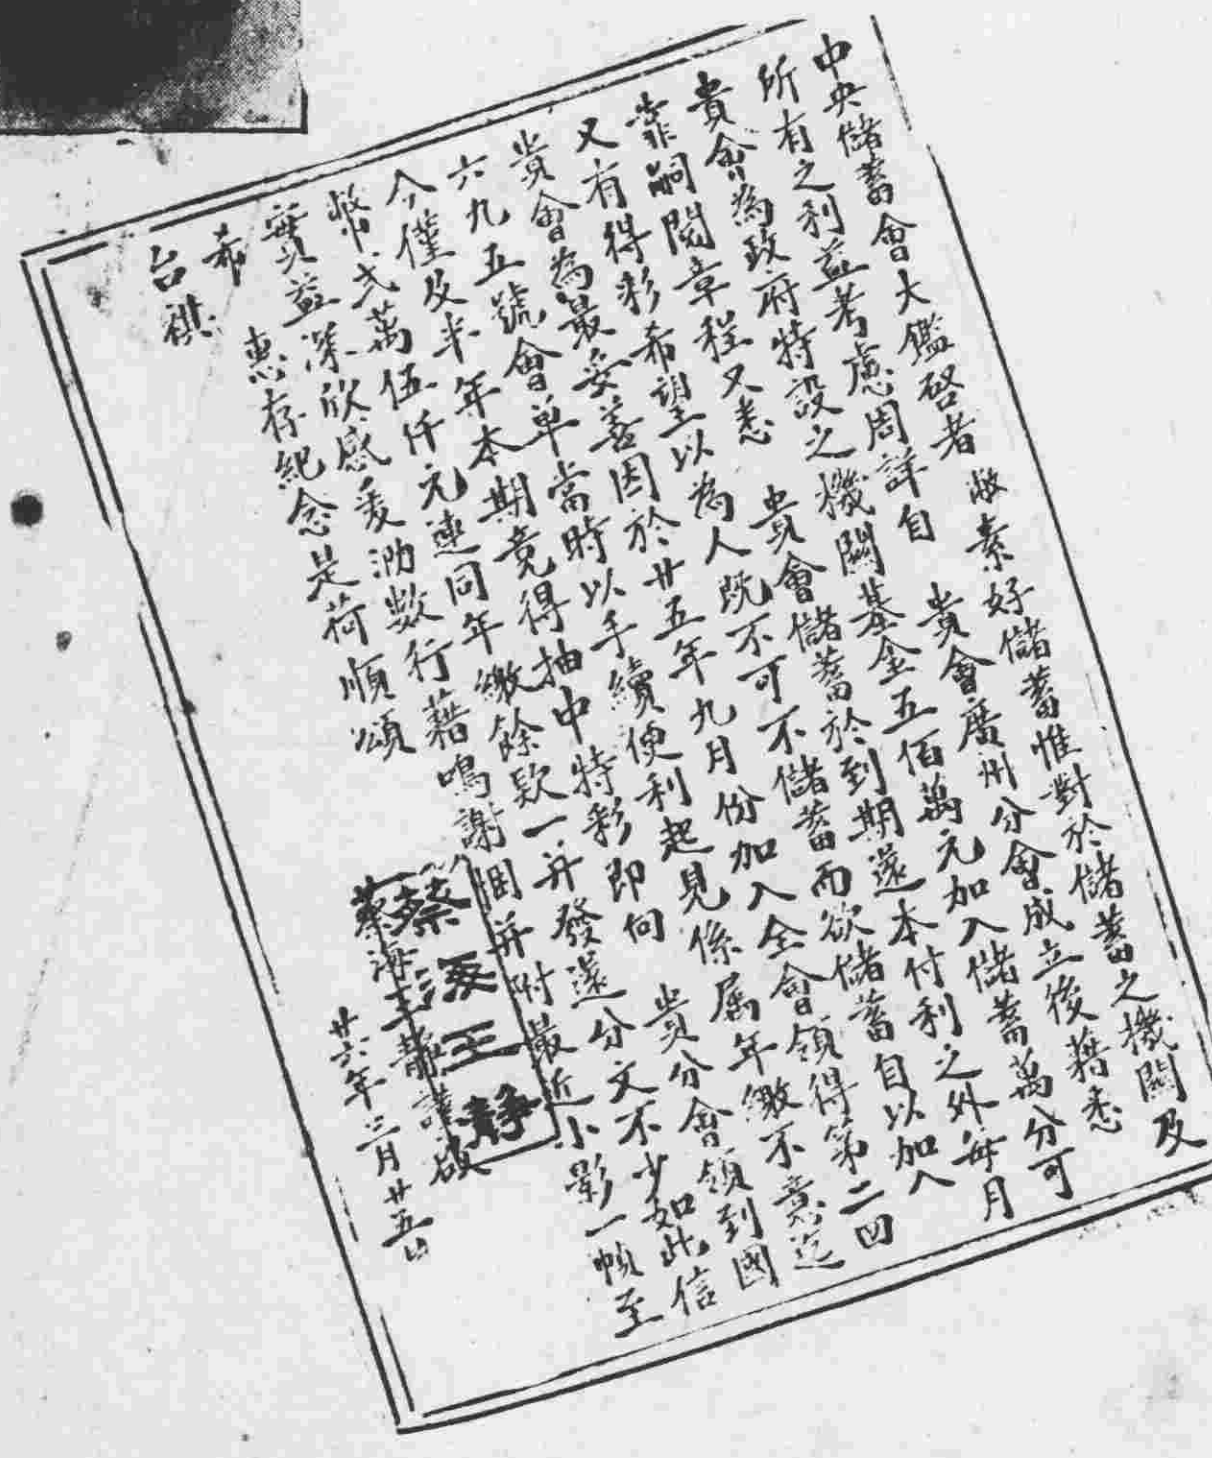 中央儲蓄會大鑑啓者 敝素好儲蓄惟對於儲蓄之機關及
所有之利益考慮周詳自 貴會廣州分會成立後藉悉
貴會為政府特設之機關基金五佰萬元加入儲蓄萬分可
靠嗣閱章程又悉 貴會儲蓄於到期還本付利之外每月
又有得彩希望以為人既不可不儲蓄而欲儲蓄自以加入
貴會為最妥善因於廿五年九月份加入全會領得第二四
六九五號會單當時以手續便利起見係属年繳不意迄
今僅及半年本期竟得抽中特彩即向 貴分會領到國
幣弍萬伍仟元連同年繳餘欵一并發還分文不少如此信
實益深欣感爰泐數行藉鳴謝悃并附最近小影一幀至
希 惠存紀念是荷順頌
台祺
蔡海王靜謹啟
蔡海王靜
廿六年三月廿五日